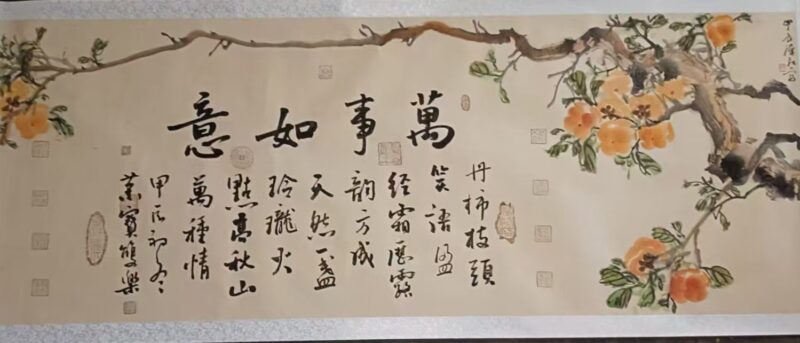 萬事如意
丹柿枝頭
笑語盈
经霜歷露
韻方成
天然一盏
玲瓏火
點亮秋山
萬種情
甲辰初冬
甲辰